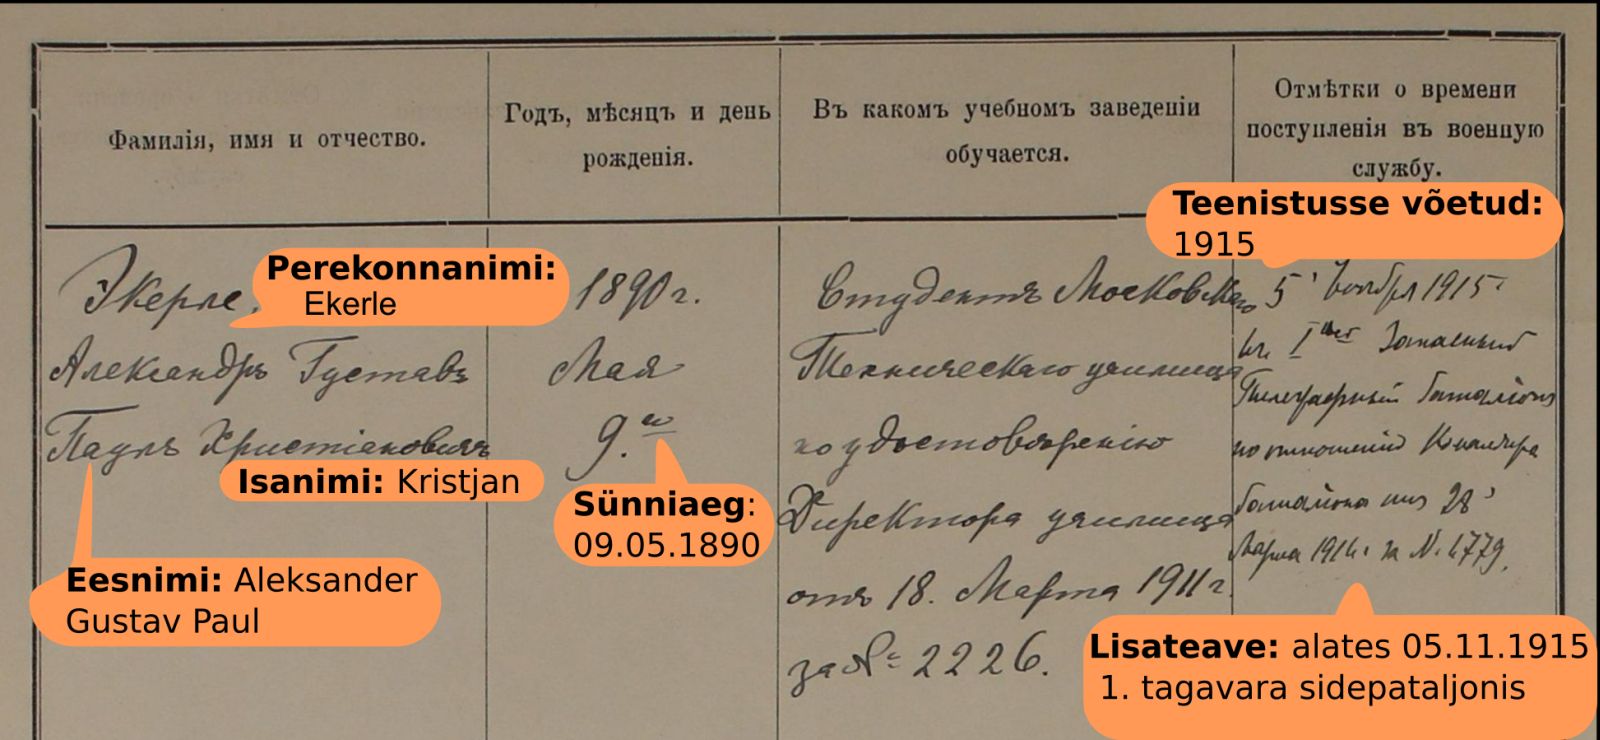 Фамилія, имя и отчество.
Годъ, мѣсяцъ и день
рожденія.
Въ какомъ учебномъ заведеніи
обучается.
Отмѣтки о времени
поступленія въ военную
службу.
Экерле,
Александръ Густавъ
Пауль Христіановичъ
Perekonnanimi:
Ekerle
Isanimi: Kristjan
Eesnimi: Aleksander
Gustav Paul
1890 г.
Мая
9.го
Sünniaeg:
09.05.1890
Студентъ Московскаго
Техническаго училища
по удостовѣренію
Директора училища
отъ 18. Марта 1911 г.
за № 2226.
Teenistusse võetud:
1915
5 Ноября 1915
въ Iый Запасный
Телеграфный баталіонъ
по отношенію Командира
баталіона отъ 28
Марта 1916 г. за № 4779.
Lisateave: alates 05.11.1915
1. tagavara sidepataljonis